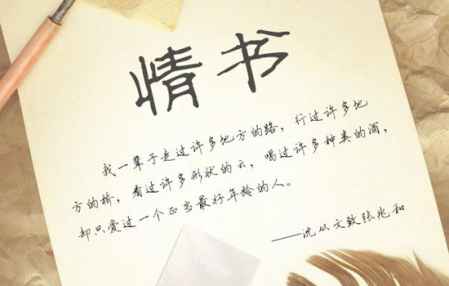 情书
我一辈子走过许多地方的路，行过许多地
方的桥，看过许多形状的云，喝过许多种类的酒，
却只爱过一个正当最好年龄的人。
——沈从文致张兆和